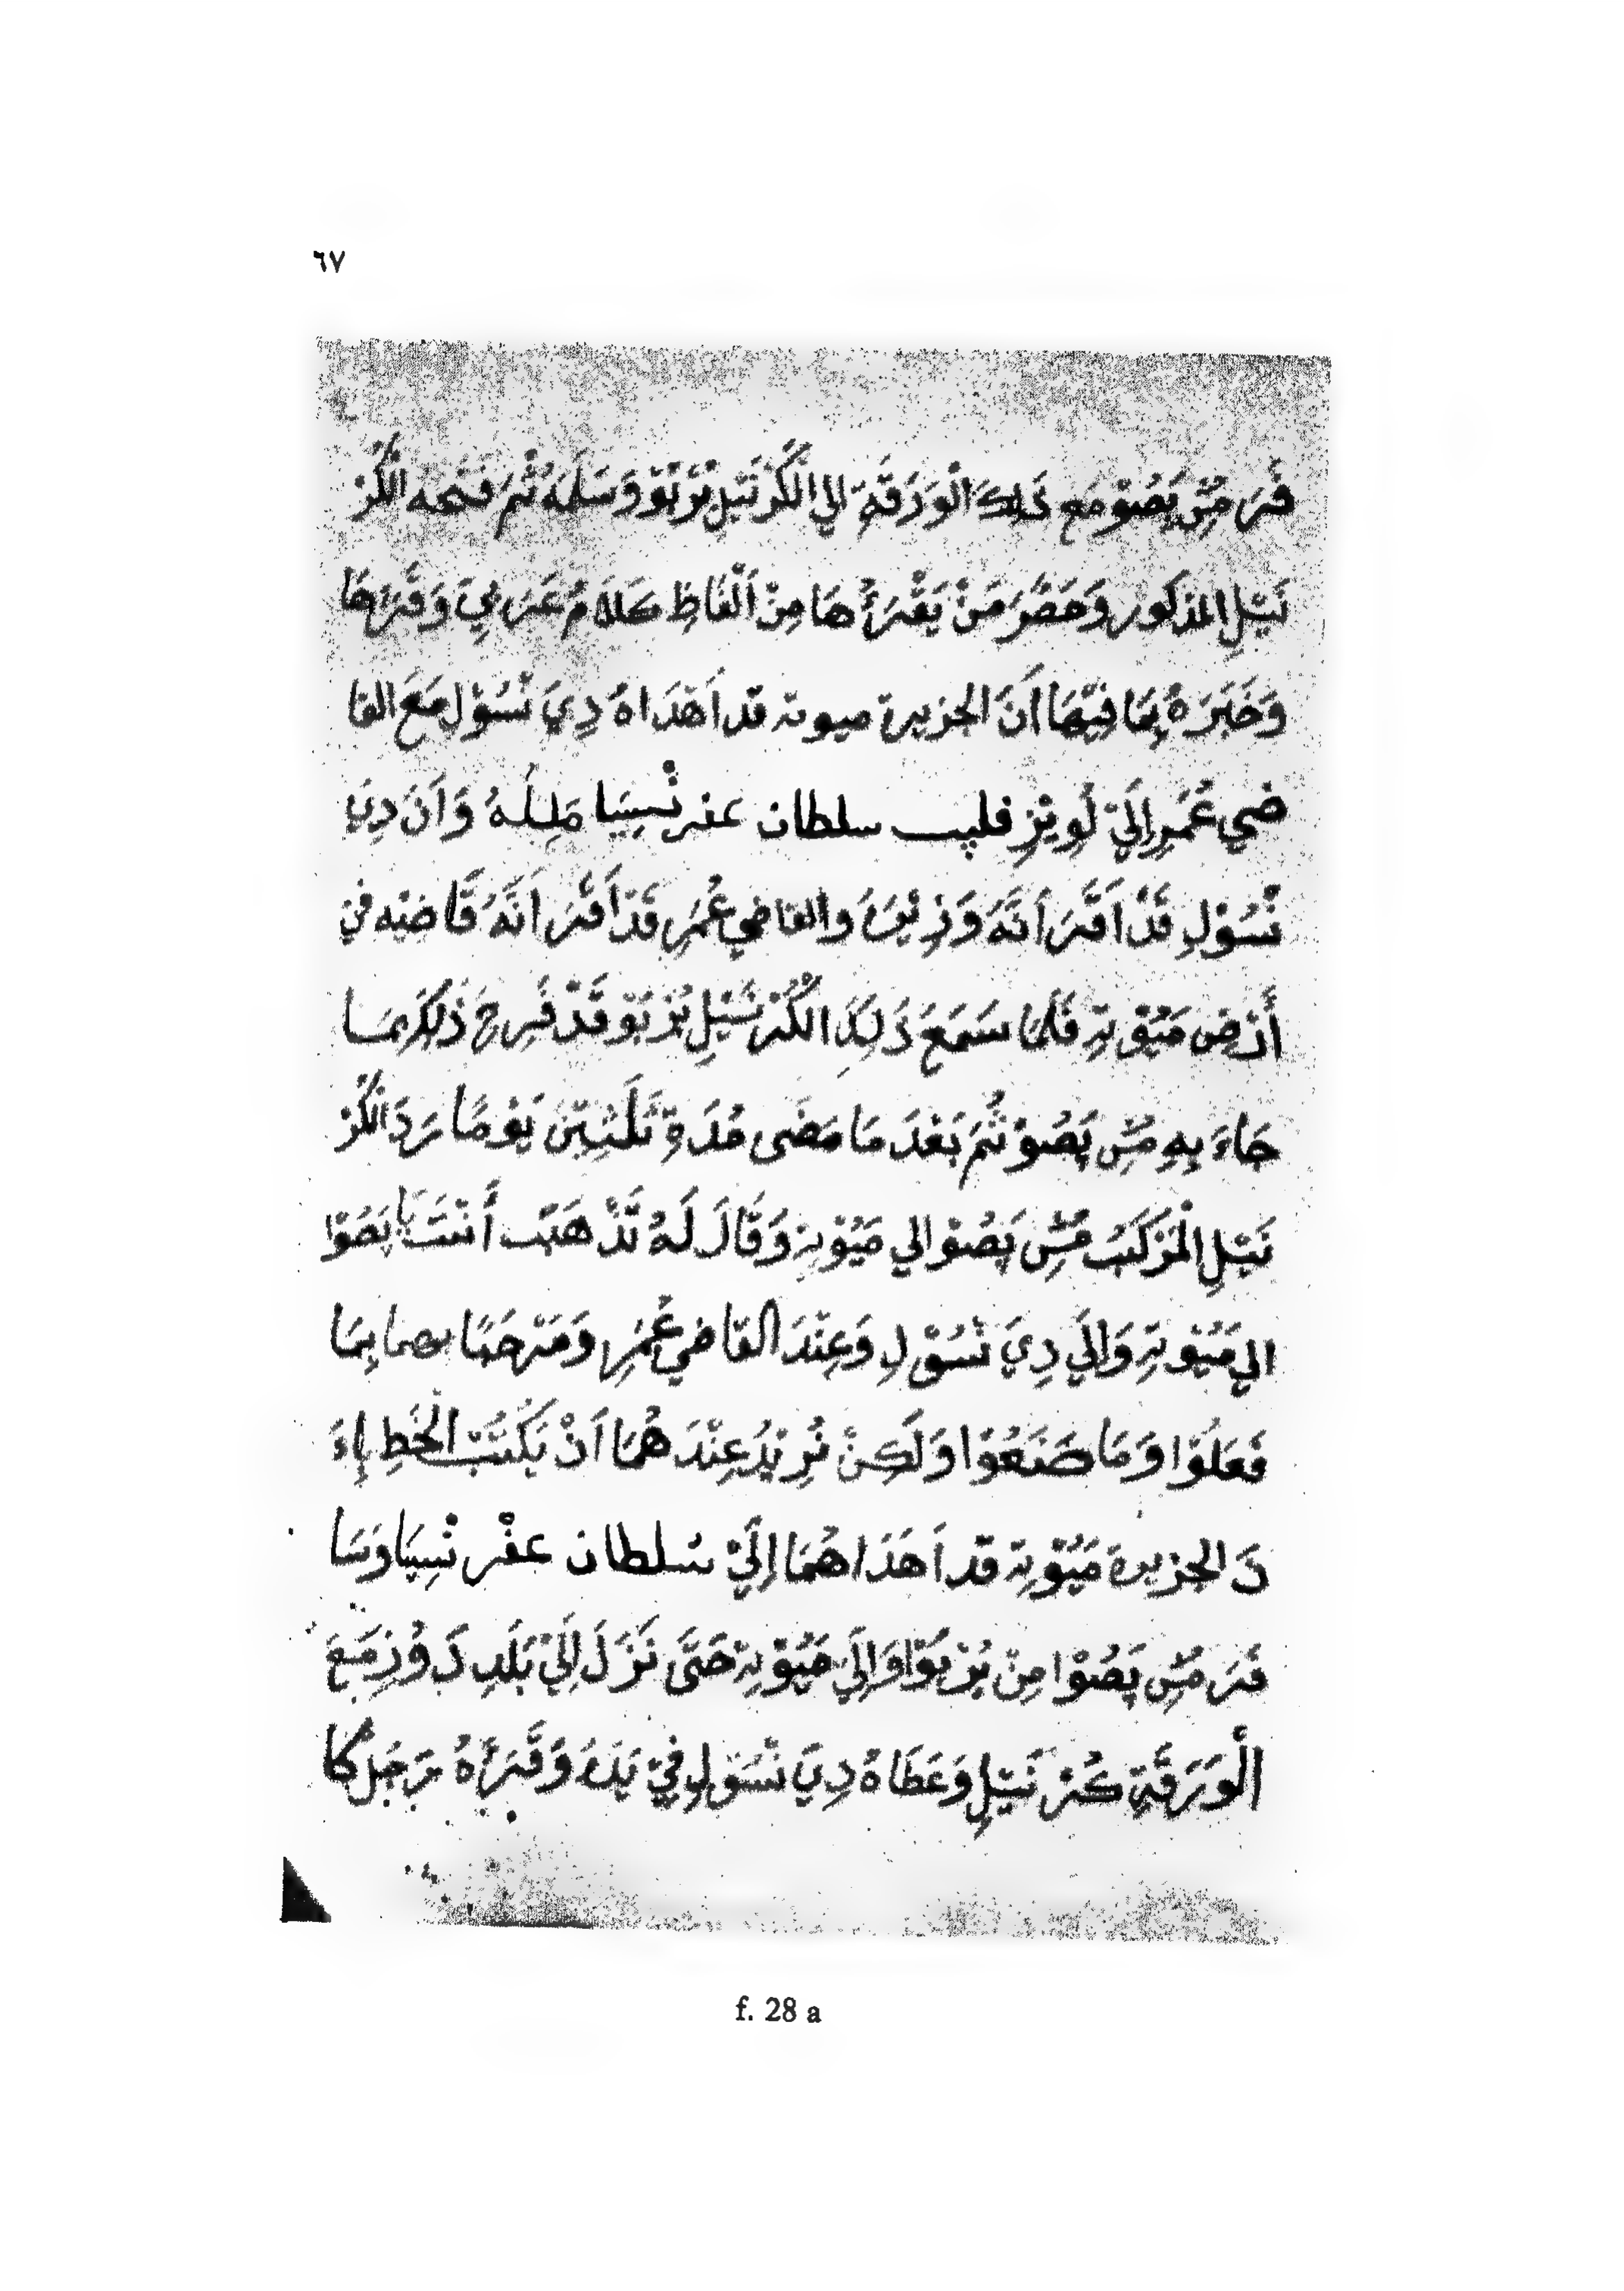 ٦٧
فَرَ مُسِّ بَصُوْ مَع ذَلِكَ الْوَرَقَةِ الي الْكُرْنَيْلِ بُرْبُوْ وَسَلَّمَهُ ثُمَ فَتَحَهُ الْكُرْ
نَيْلِ المذكُور وَحَضَّرَ مَنْ يَقْرَأُهَا مِنْ اَلْفَاظِ كَلاَمُ عَرَبِيِّ وَقَرَرهَا
وَخَبَرَهُ بِمَا فِيْهَا اَنَ الجزيرة ميوته قد اَهْدَاهُ دِيَ نْسُوْلِ مَعَ القا
ضي عُمَرِ اِلَيْ لُوِيْزِ فليپ سلطان عفرنْسِيَا مَلِلْهُ وَاَنَ دِيَ
نْسُوْلِ قَدْ اَقَرَ اَنَّهُ وَزِيْرَ وَالقاضي عُمَرِ قَدْ اَقَرَ اَنَّهُ قَاضيْه في
أَرْضِ مَيُوْتِهِ فَلَمَا سَمَعَ ذَلِكَ الْكُرْنَيْلِ بُرْبَوْ قَدْ فَرِحَ ذَلِكَ بِمَا
جَاءَ بِهِ مُسِّ بَصُوْ ثُمَ بَعْدَ مَا مَضَى مُدَةِ ثَلَثِيْنَ يَوْمًا رَدَ الْكُرْ
نَيْلِ الْمَرْكَبُ مُسِّ بَصُوْ الي مَيُوْتِهِ وَقَالَ لَهُ تَذْهَبَ أَنْتَ يَا بَصُوْا
الي مَيُوْتِهِ وَاِلَي دِيَ نْسُوْلِ وَعِنْدَ القاضي عُمَرِ وَمَرْحَبًا بهما بِمَا
فَعَلُوْا وَمَا صَنَعُوْا وَلَكِنْ نُرِيْدُ عِنْدَ هُمَا اَنْ يَكْتُبُ الْخَطِ بِاءَ
نَ الجزيرة مَيُوْتِه قد اَهَدَاهُمَا اِلَيْ سُلطان عفْرنْسِيَا وَسَا
فَرَ مُسِّ بَصُوْا مِنْ بُرْبَوْا وَاِلَي مَيُوْتِهِ حَتَّى نَزَلَ اِلَيْ بَلَدِ دَوُزِ مَعَ
الْوَرَقَةِ كُرْنَيْلِ وَعَطَاهُ دِيَ نْسُوْلِ فِيْ يَدَهُ وَقَرَأَهُ رَجُلٌ كَا
f. 28 a